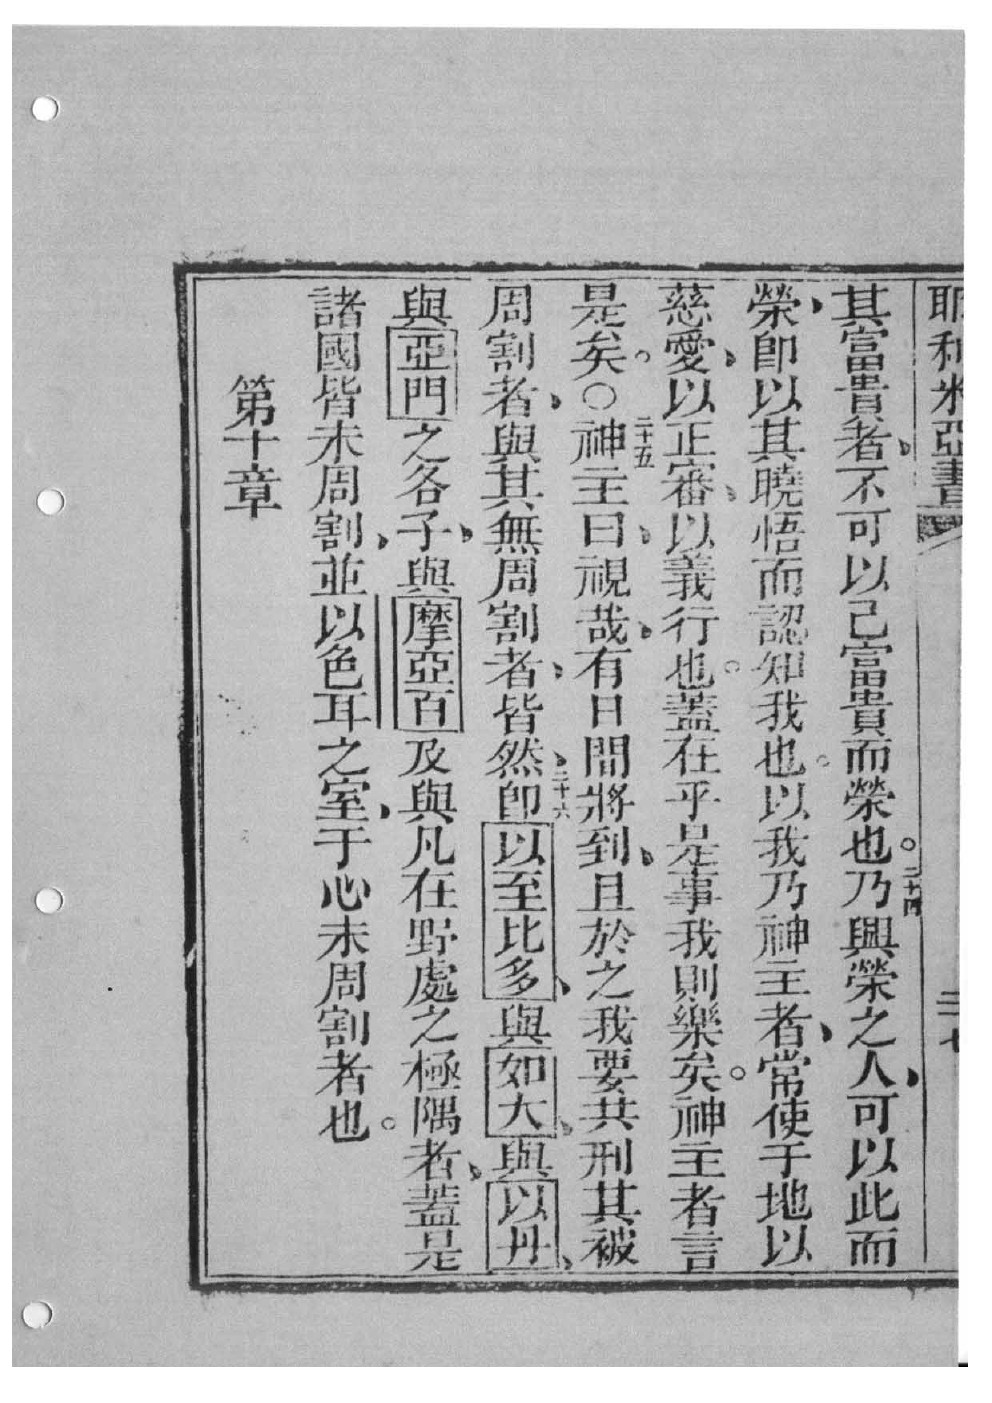 耶利米亞書 二十七
其富貴者、不可以己富貴而榮也。二十四乃與榮之人、可以此而
榮、即以其曉悟而認知我也。以我乃神主者、常使于地以
慈愛、以正審、以義行也。蓋在乎是事我則樂矣。神主者言
是矣。○二十五神主曰、視哉、有日間將到、且於之我要共刑其被
周割者、與其無周割者、皆然、二十六即以至比多、與如大、與以丹、
與亞門之各子、與摩亞百及與凡在野處之極隅者、蓋是
諸國皆未周割、並以色耳之室、于心未周割者也。
第十章